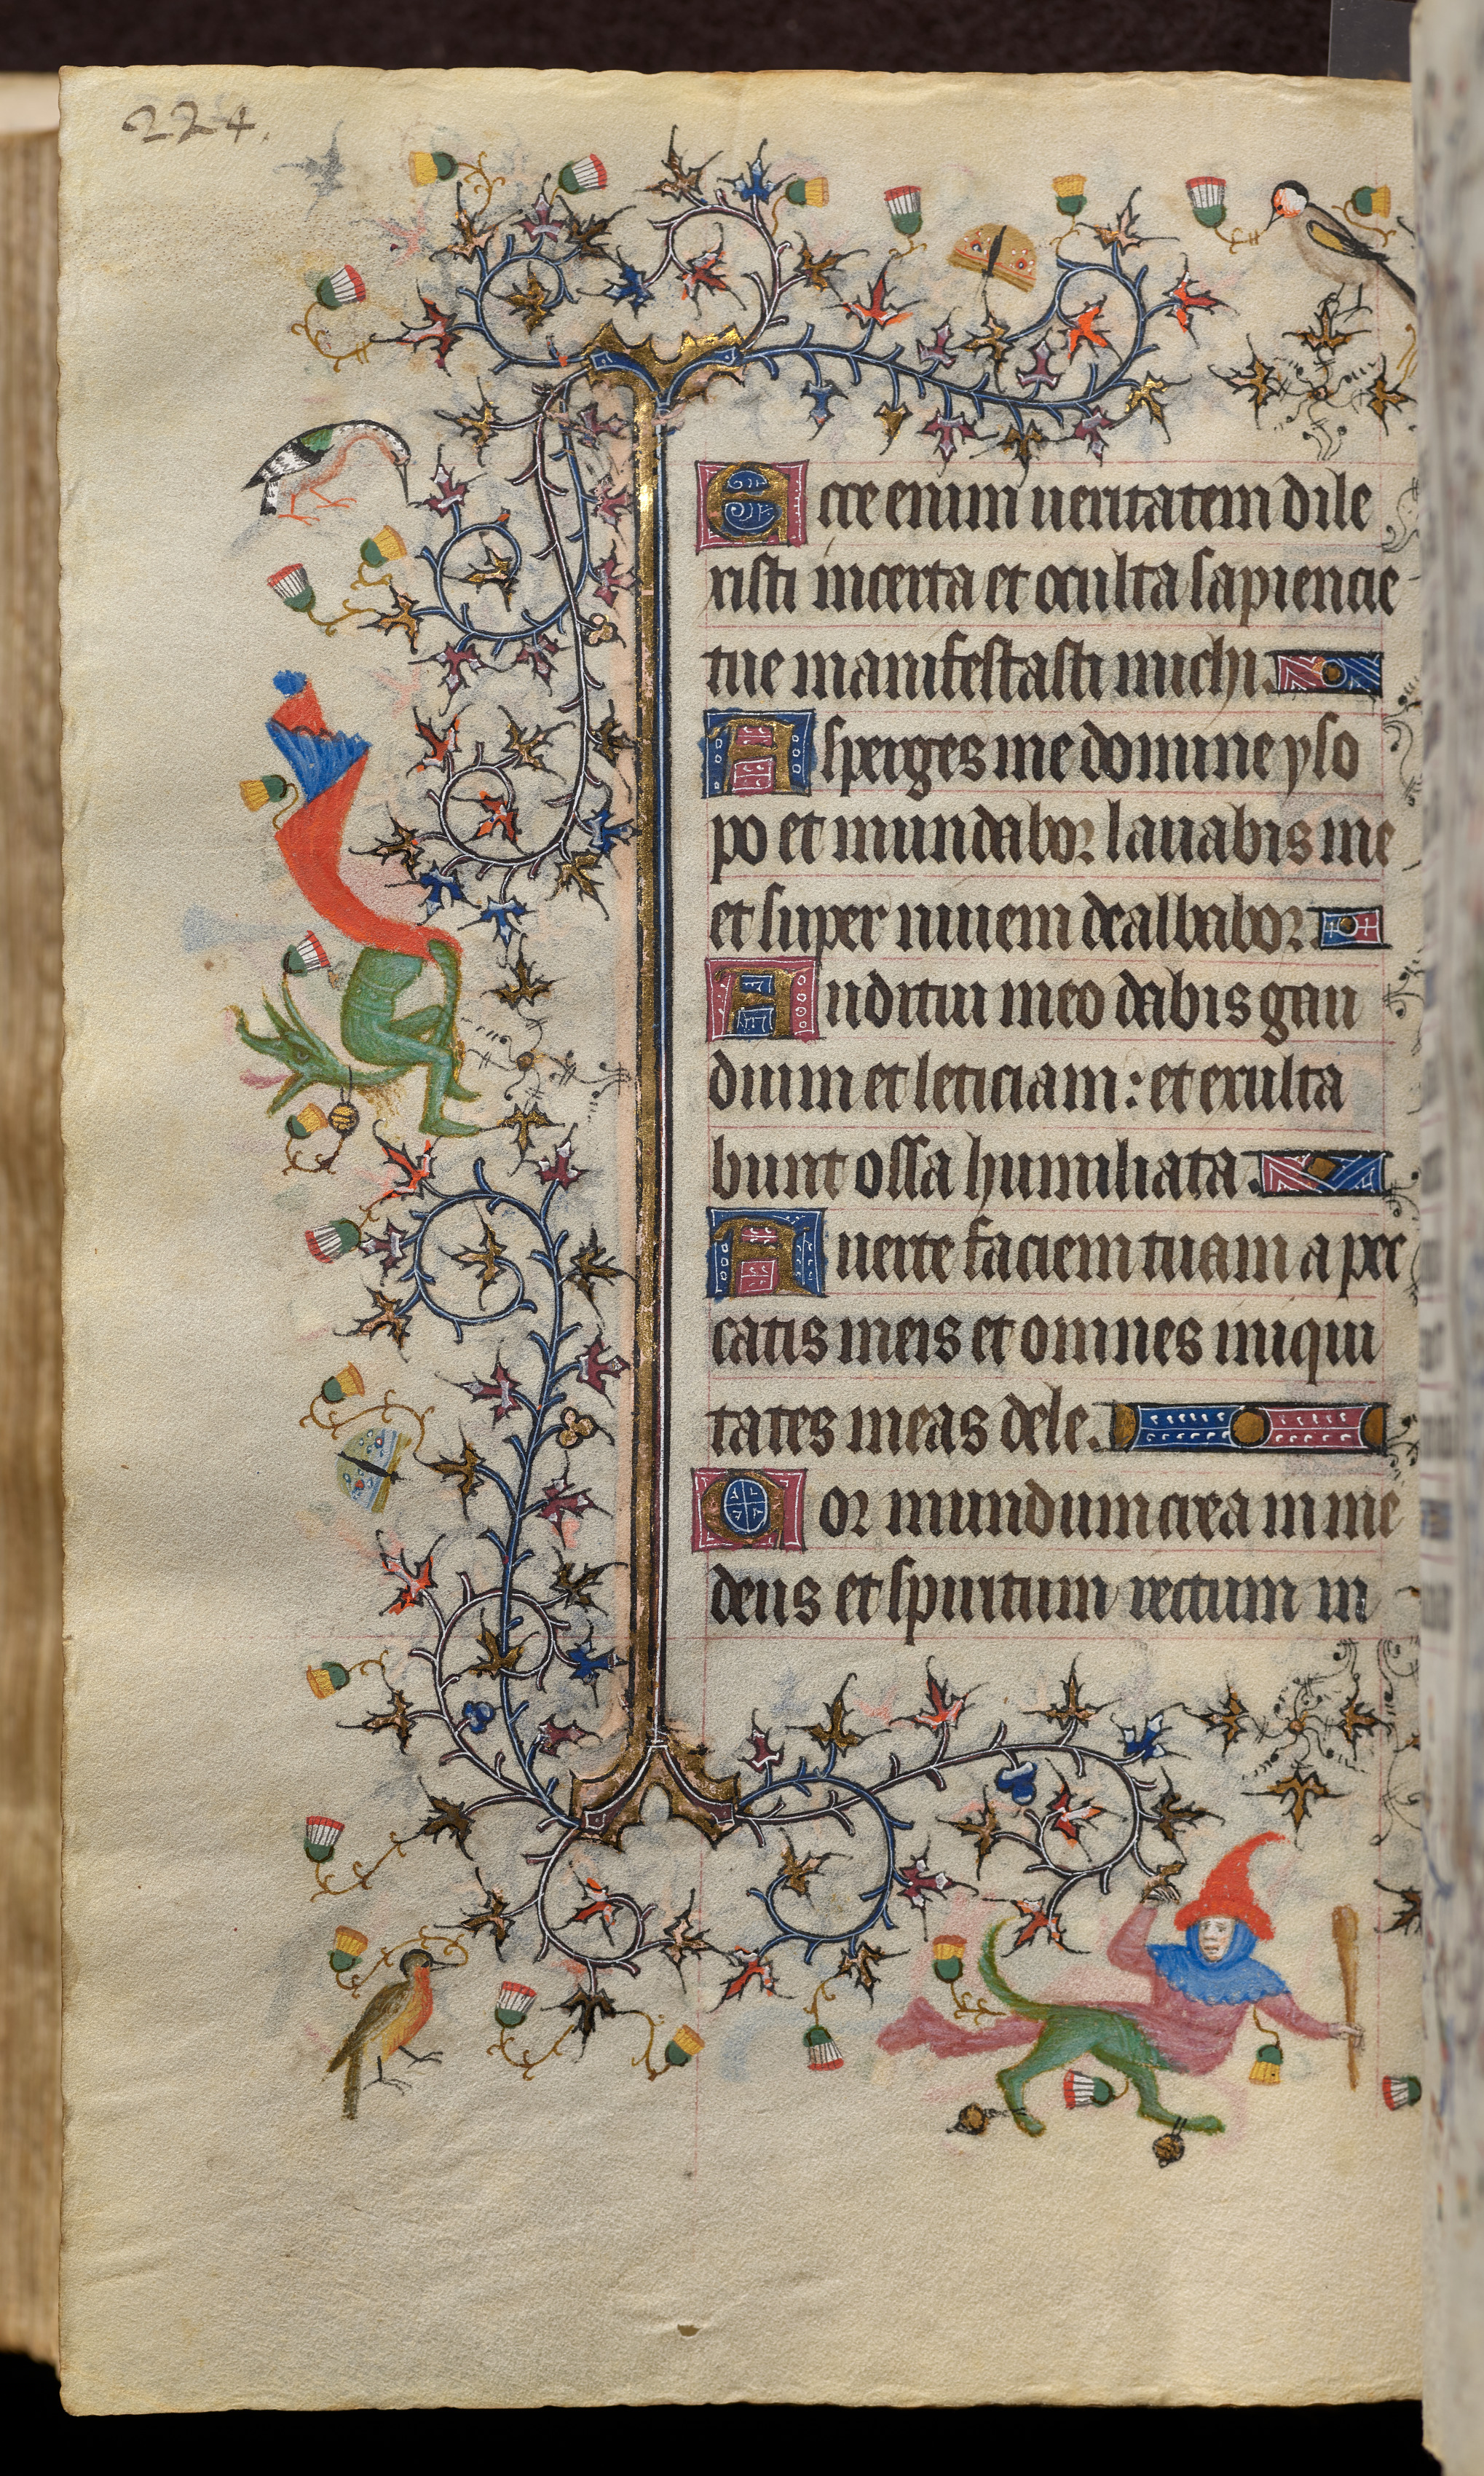 224.
Ecce enim ueritatem dile
xisti incerta et oculta sapiencie
tue manifestasti michi.
Asperges me domine yso
po et mundabor lauabis me
et super niuem dealbabor
Auditui meo dabis gau
dium et leticiam: et exulta
bunt ossa humiliata.
Auerte faciem tuam a pec
catis meis et omnes iniqui
tates meas dele.
Cor mundum crea in me
deus et spiritum rectum in